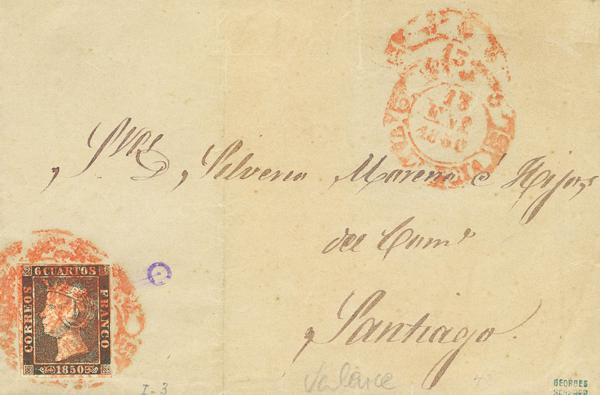 13
13
1850
Sres D. Silverio Moreno é Hijos
del Como
Santiago
6 CUARTOS
CORREOS
FRANCO
1850
I-3
Valence
GEORGES